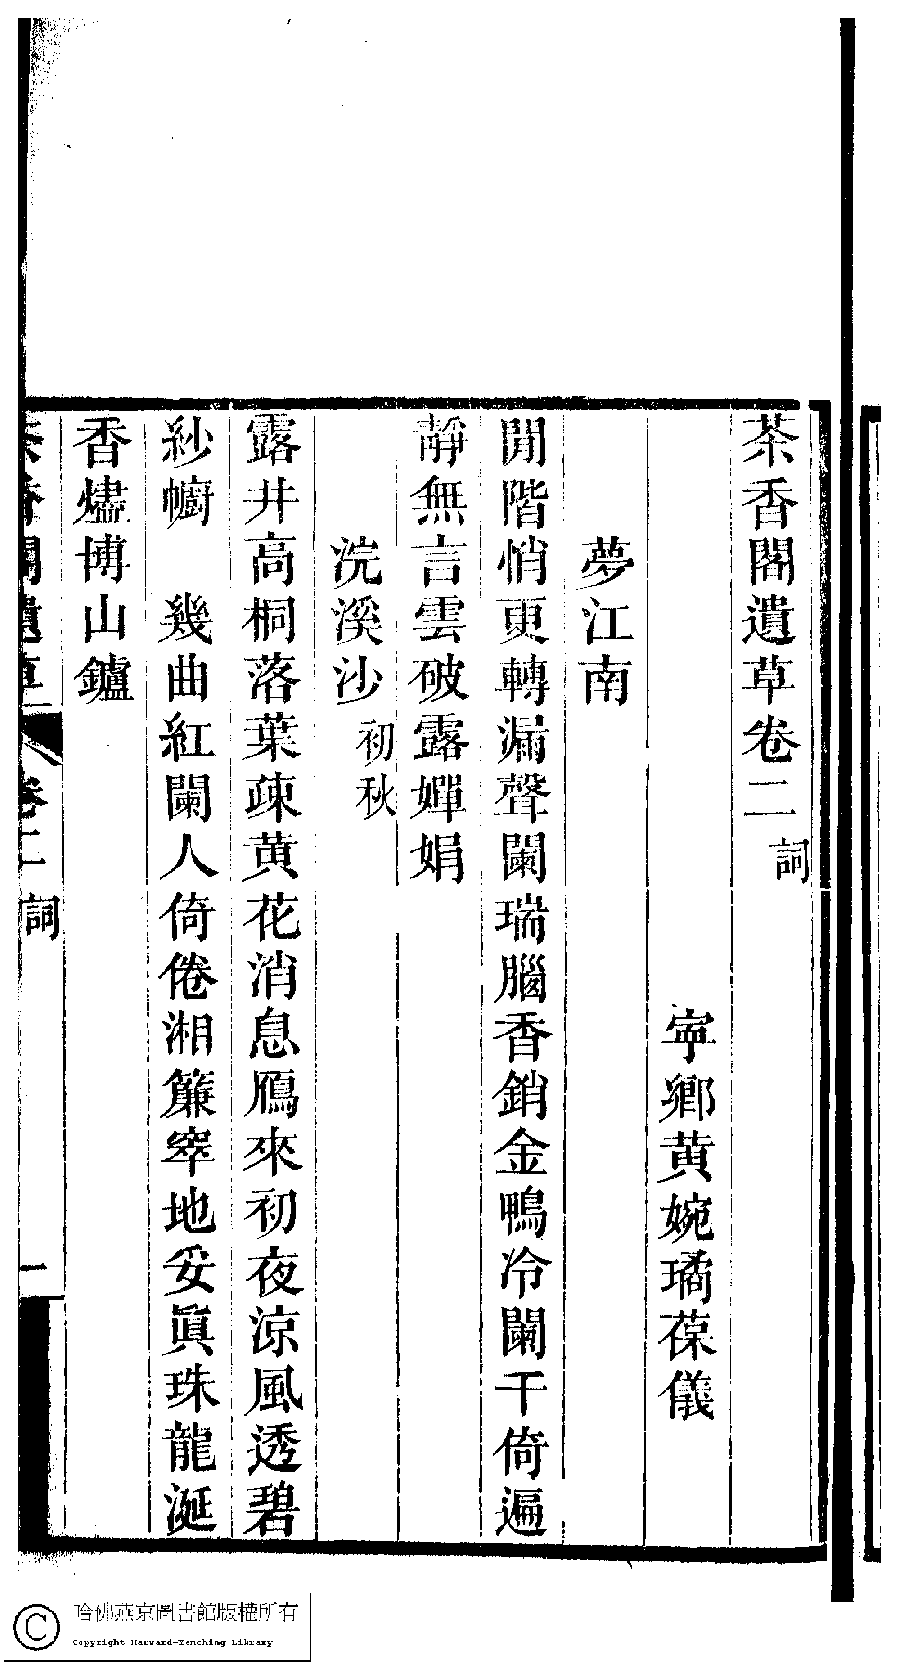 茶香閣遺草卷二 詞
甯鄉黃婉璚葆儀
夢江南
閒階悄更轉漏聲闌瑞腦香銷金鴨冷闌干倚遍
靜無言雲破露嬋娟
浣溪沙 初秋
露井高桐落葉疎黃花消息鴈來初夜涼風透碧
紗幮 幾曲紅闌人倚倦湘簾窣地妥眞珠龍涎
香燼博山鑪
茶香閣遺草 卷二 詞 一
哈佛燕京圖書館版權所有
Copyright Harvard-Yenching Library